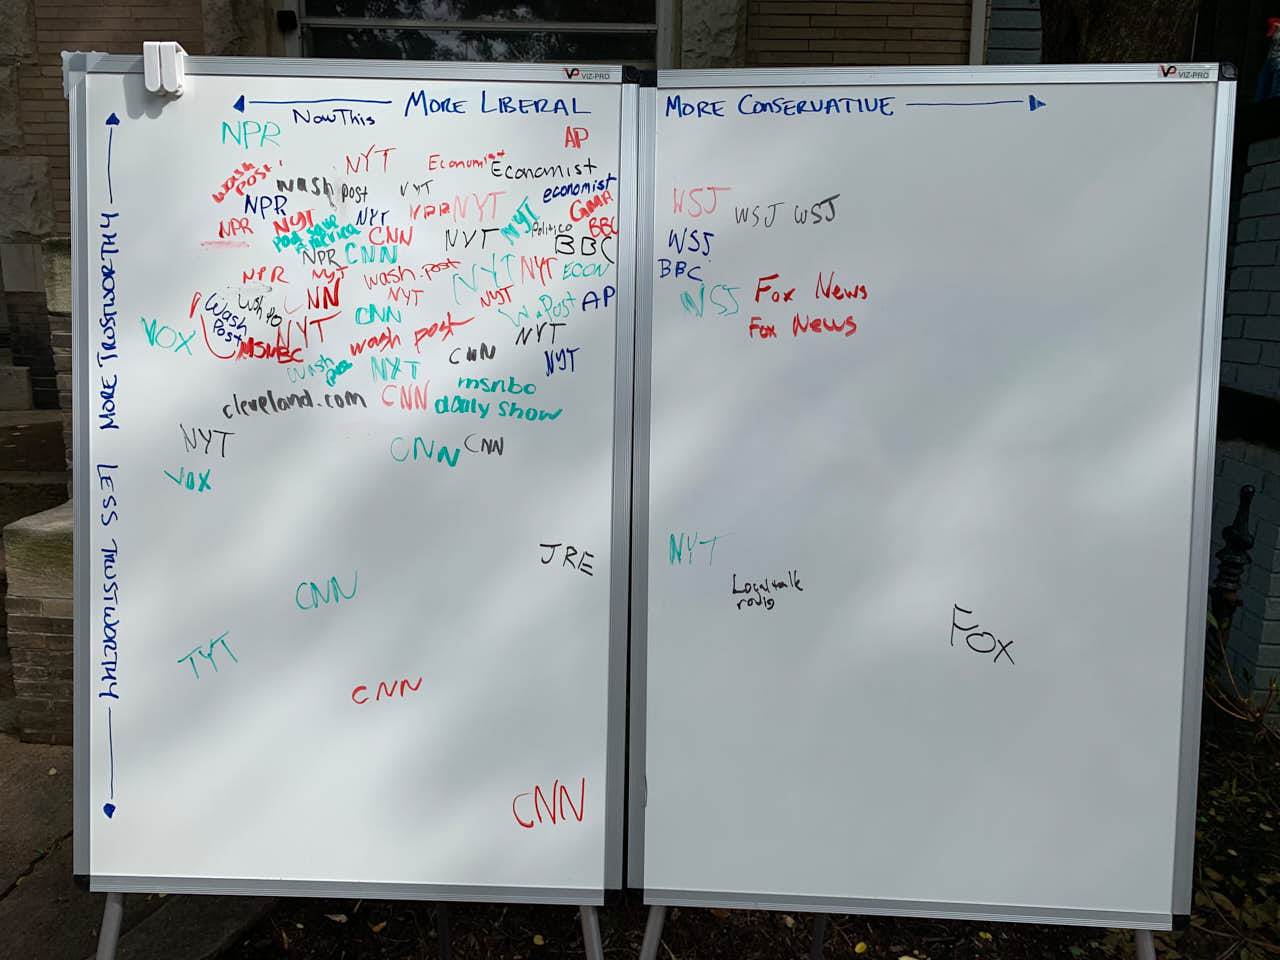 VP VIZ-PRO
VP VIZ-PRO
MORE LIBERAL
MORE CONSERVATIVE
MORE TRUSTWORTHY
LESS TRUSTWORTHY
NowThis
NPR
AP
NYT
Economist
Economist
wash post
wash post
NYT
economist
NPR
NYT
NPR
NYT
NYT
GMA
NPR
NYT
Pod Save America
CNN
NYT
Politico
BBC
BBC
NPR
CNN
NPR
NYT
wash. post
NYT
NYT
ECON
Wash Post
CNN
NYT
NYT
W. Post
AP
VOX
NYT
CNN
MSNBC
wash post
NYT
CNN
NYT
wash post
NYT
msnbc
cleveland.com
CNN
daily show
NYT
CNN
CNN
VOX
JRE
CNN
TYT
CNN
CNN
WSJ
WSJ
WSJ
WSJ
BBC
WSJ
Fox News
Fox News
NYT
Local talk radio
FOX